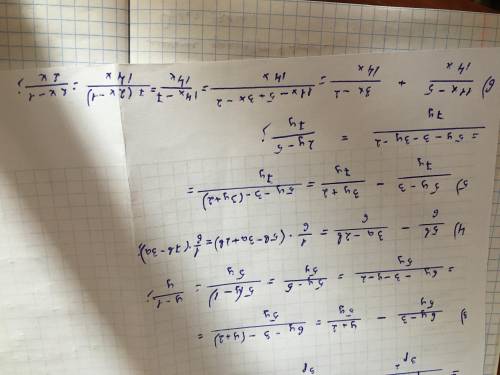 3) \frac{6y-3}{5y} - \frac{y+2}{5y} = \frac{6y-3-(y+2)}{5y} =
= \frac{6y-3-y-2}{5y} = \frac{5y-5}{5y} = \frac{5(y-1)}{5y} = \frac{y-1}{y};
4) \frac{5b}{6} - \frac{3a-2b}{6} = \frac{1}{6}·(5b-3a+2b) = \frac{1}{6}·(7b-3a);
5) \frac{5y-3}{7y} - \frac{3y+2}{7y} = \frac{5y-3-(3y+2)}{7y} =
= \frac{5y-3-3y-2}{7y} = \frac{2y-5}{7y};
6) \frac{11x-5}{14x} + \frac{3x-2}{14x} = \frac{11x-5+3x-2}{14x} = \frac{14x-7}{14x} = \frac{7(2x-1)}{14x} = \frac{2x-1}{2x};